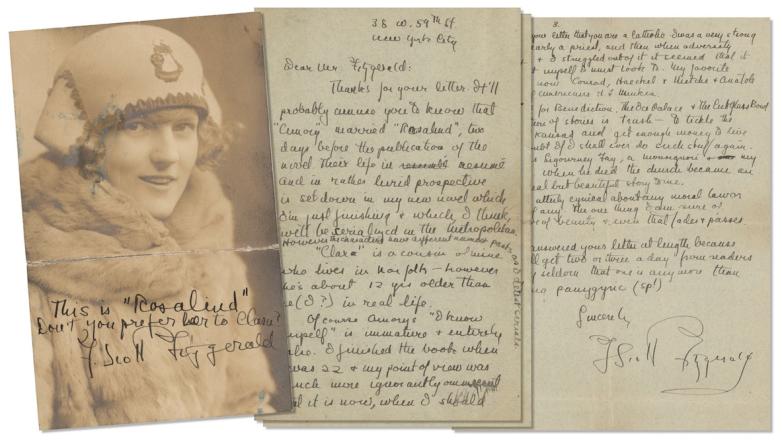 This is "Rosalind"
Don't you prefer her to Clara?
F. Scott Fitzgerald
38 W. 59th St.
New York City
Dear Mr. Fitzgerald:
Thanks for your letter. It'll
probably amuse you to know that
"Amory" married "Rosalind", two
days before the publication of the
novel their life in
and in rather lurid prospective
is set down in my new novel which
I'm just finishing & which, I think,
will be serialized in the Metropolitan.
However the characters have different names
"Clara" is a cousin of mine
who lives in Norfolk — however
she's about 12 yrs older than
me (I?) in real life.
Of course Amory's "I know
myself" is immature & entirely
I finished the book when
was 22 & my point of view was
much more ignorantly
it is now, when I should
3.
your letter that you are a Catholic. I was a very strong
nearly a priest, and then when adversity
& I struggled out of it it seemed that it
myself I must look to. My favorite
now Conrad, Haeckel & Nietche & Anatole
H. L. Menken.
for Benediction, The Ice Palace & The Cut Glass Bowl
of stories is trash — To tickle the
Kansas and get enough money to live
if I shall ever do such stuff again.
Sigourney Fay, a monsignori & my
when he died the church became an
but beautiful story to me.
utterly cynical about any moral law or
any. The one thing I am sure of
of beauty & even that fades & passes
answered your letter at length because
I get two or three a day from readers
seldom that one is any more than
panygyric (sp!)
Sincerely
F Scott Fitzgerald